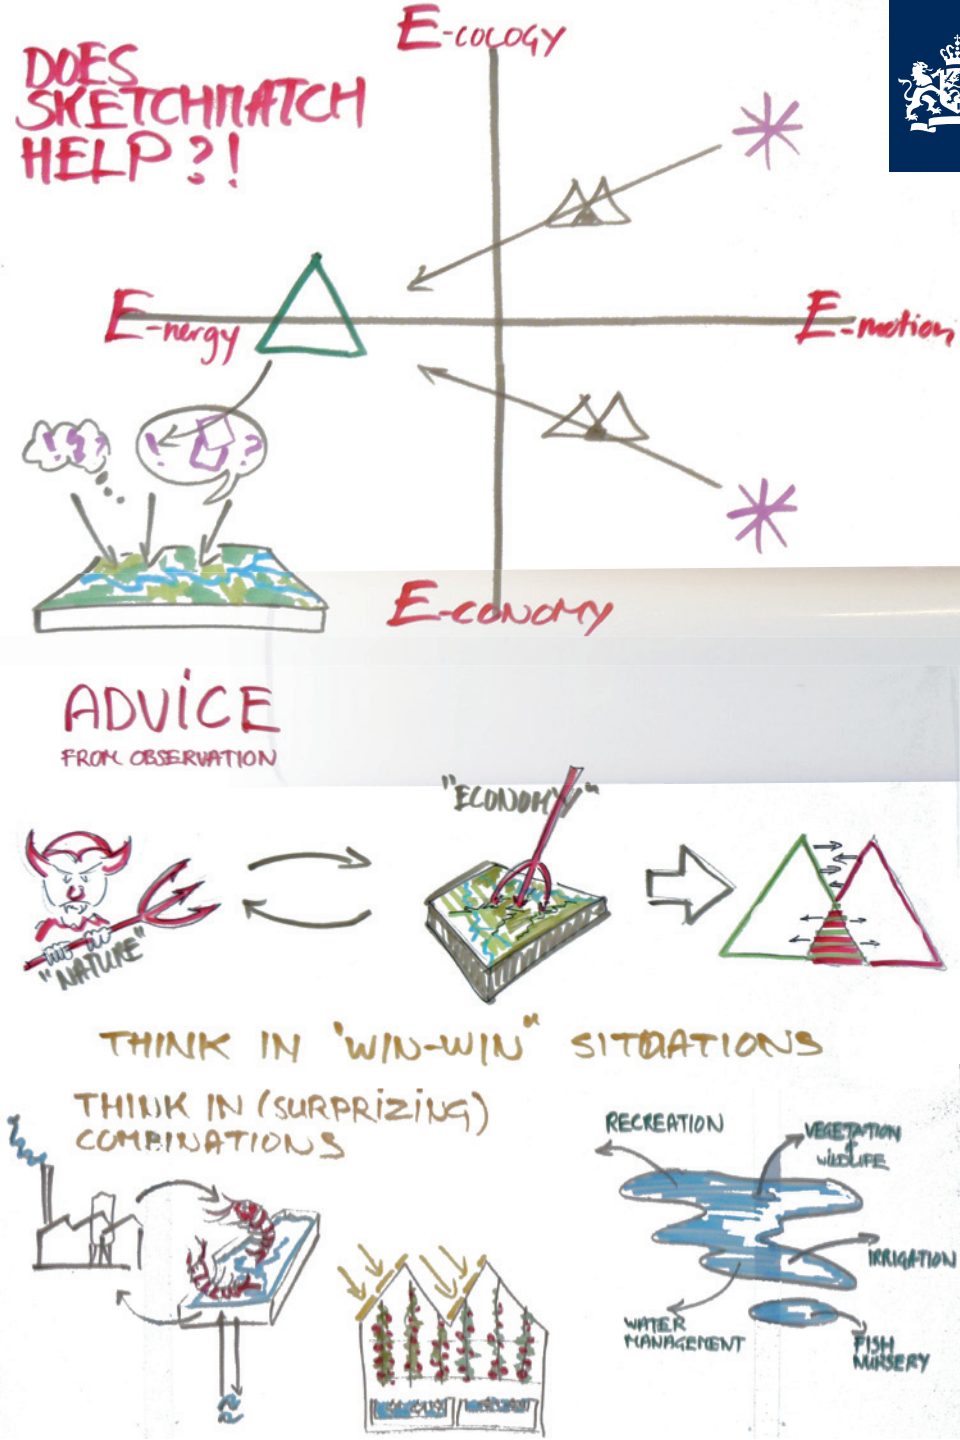 E-COLOGY
DOES
SKETCHMATCH
HELP?!
E-nergy
E-motion
! ?
E-CONOMY
ADVICE
FROM OBSERVATION
"ECONOMY"
"NATURE"
THINK IN "WIN-WIN" SITUATIONS
THINK IN (SURPRIZING)
COMBINATIONS
RECREATION
VEGETATION
&
WILDLIFE
IRRIGATION
WATER
MANAGEMENT
FISH
NURSERY